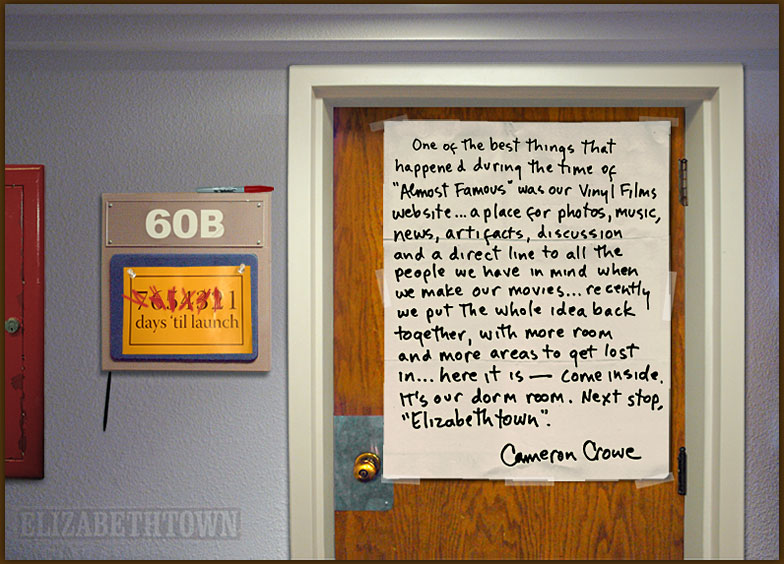 60B
7654321 1
days 'til launch
One of the best things that
happened during the time of
"Almost Famous" was our Vinyl Films
website... a place for photos, music,
news, artifacts, discussion
and a direct line to all the
people we have in mind when
we make our movies... recently
we put the whole idea back
together, with more room
and more areas to get lost
in... here it is — come inside.
It's our dorm room. Next stop,
"Elizabethtown".
Cameron Crowe
ELIZABETHTOWN